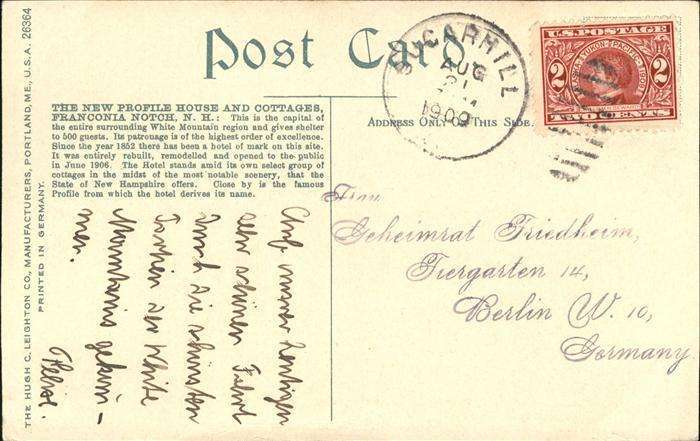 Post Card
THE NEW PROFILE HOUSE AND COTTAGES,
FRANCONIA NOTCH, N. H.: This is the capital of
the entire surrounding White Mountain region and gives shelter
to 500 guests. Its patronage is of the highest order of excellence.
Since the year 1852 there has been a hotel of mark on this site.
It was entirely rebuilt, remodelled and opened to the public
in June 1906. The Hotel stands amid its own select group of
cottages in the midst of the most notable scenery, that the
State of New Hampshire offers. Close by is the famous
Profile from which the hotel derives its name.
ADDRESS ONLY ON THIS SIDE.
SUGARHILL
AUG
21
1909
U.S. POSTAGE
ALASKA-YUKON-PACIFIC-1909
2 2
TWO CENTS
Frau
Geheimrat Friedheim,
Tiergarten 14,
Berlin W. 10,
Germany.
Auf unserer heutigen
sehr schönen Fahrt
durch die schönsten
Partien der White
Mountains gekom-
men.
THE HUGH C. LEIGHTON CO., MANUFACTURERS, PORTLAND, ME., U.S.A. 26364
PRINTED IN GERMANY.